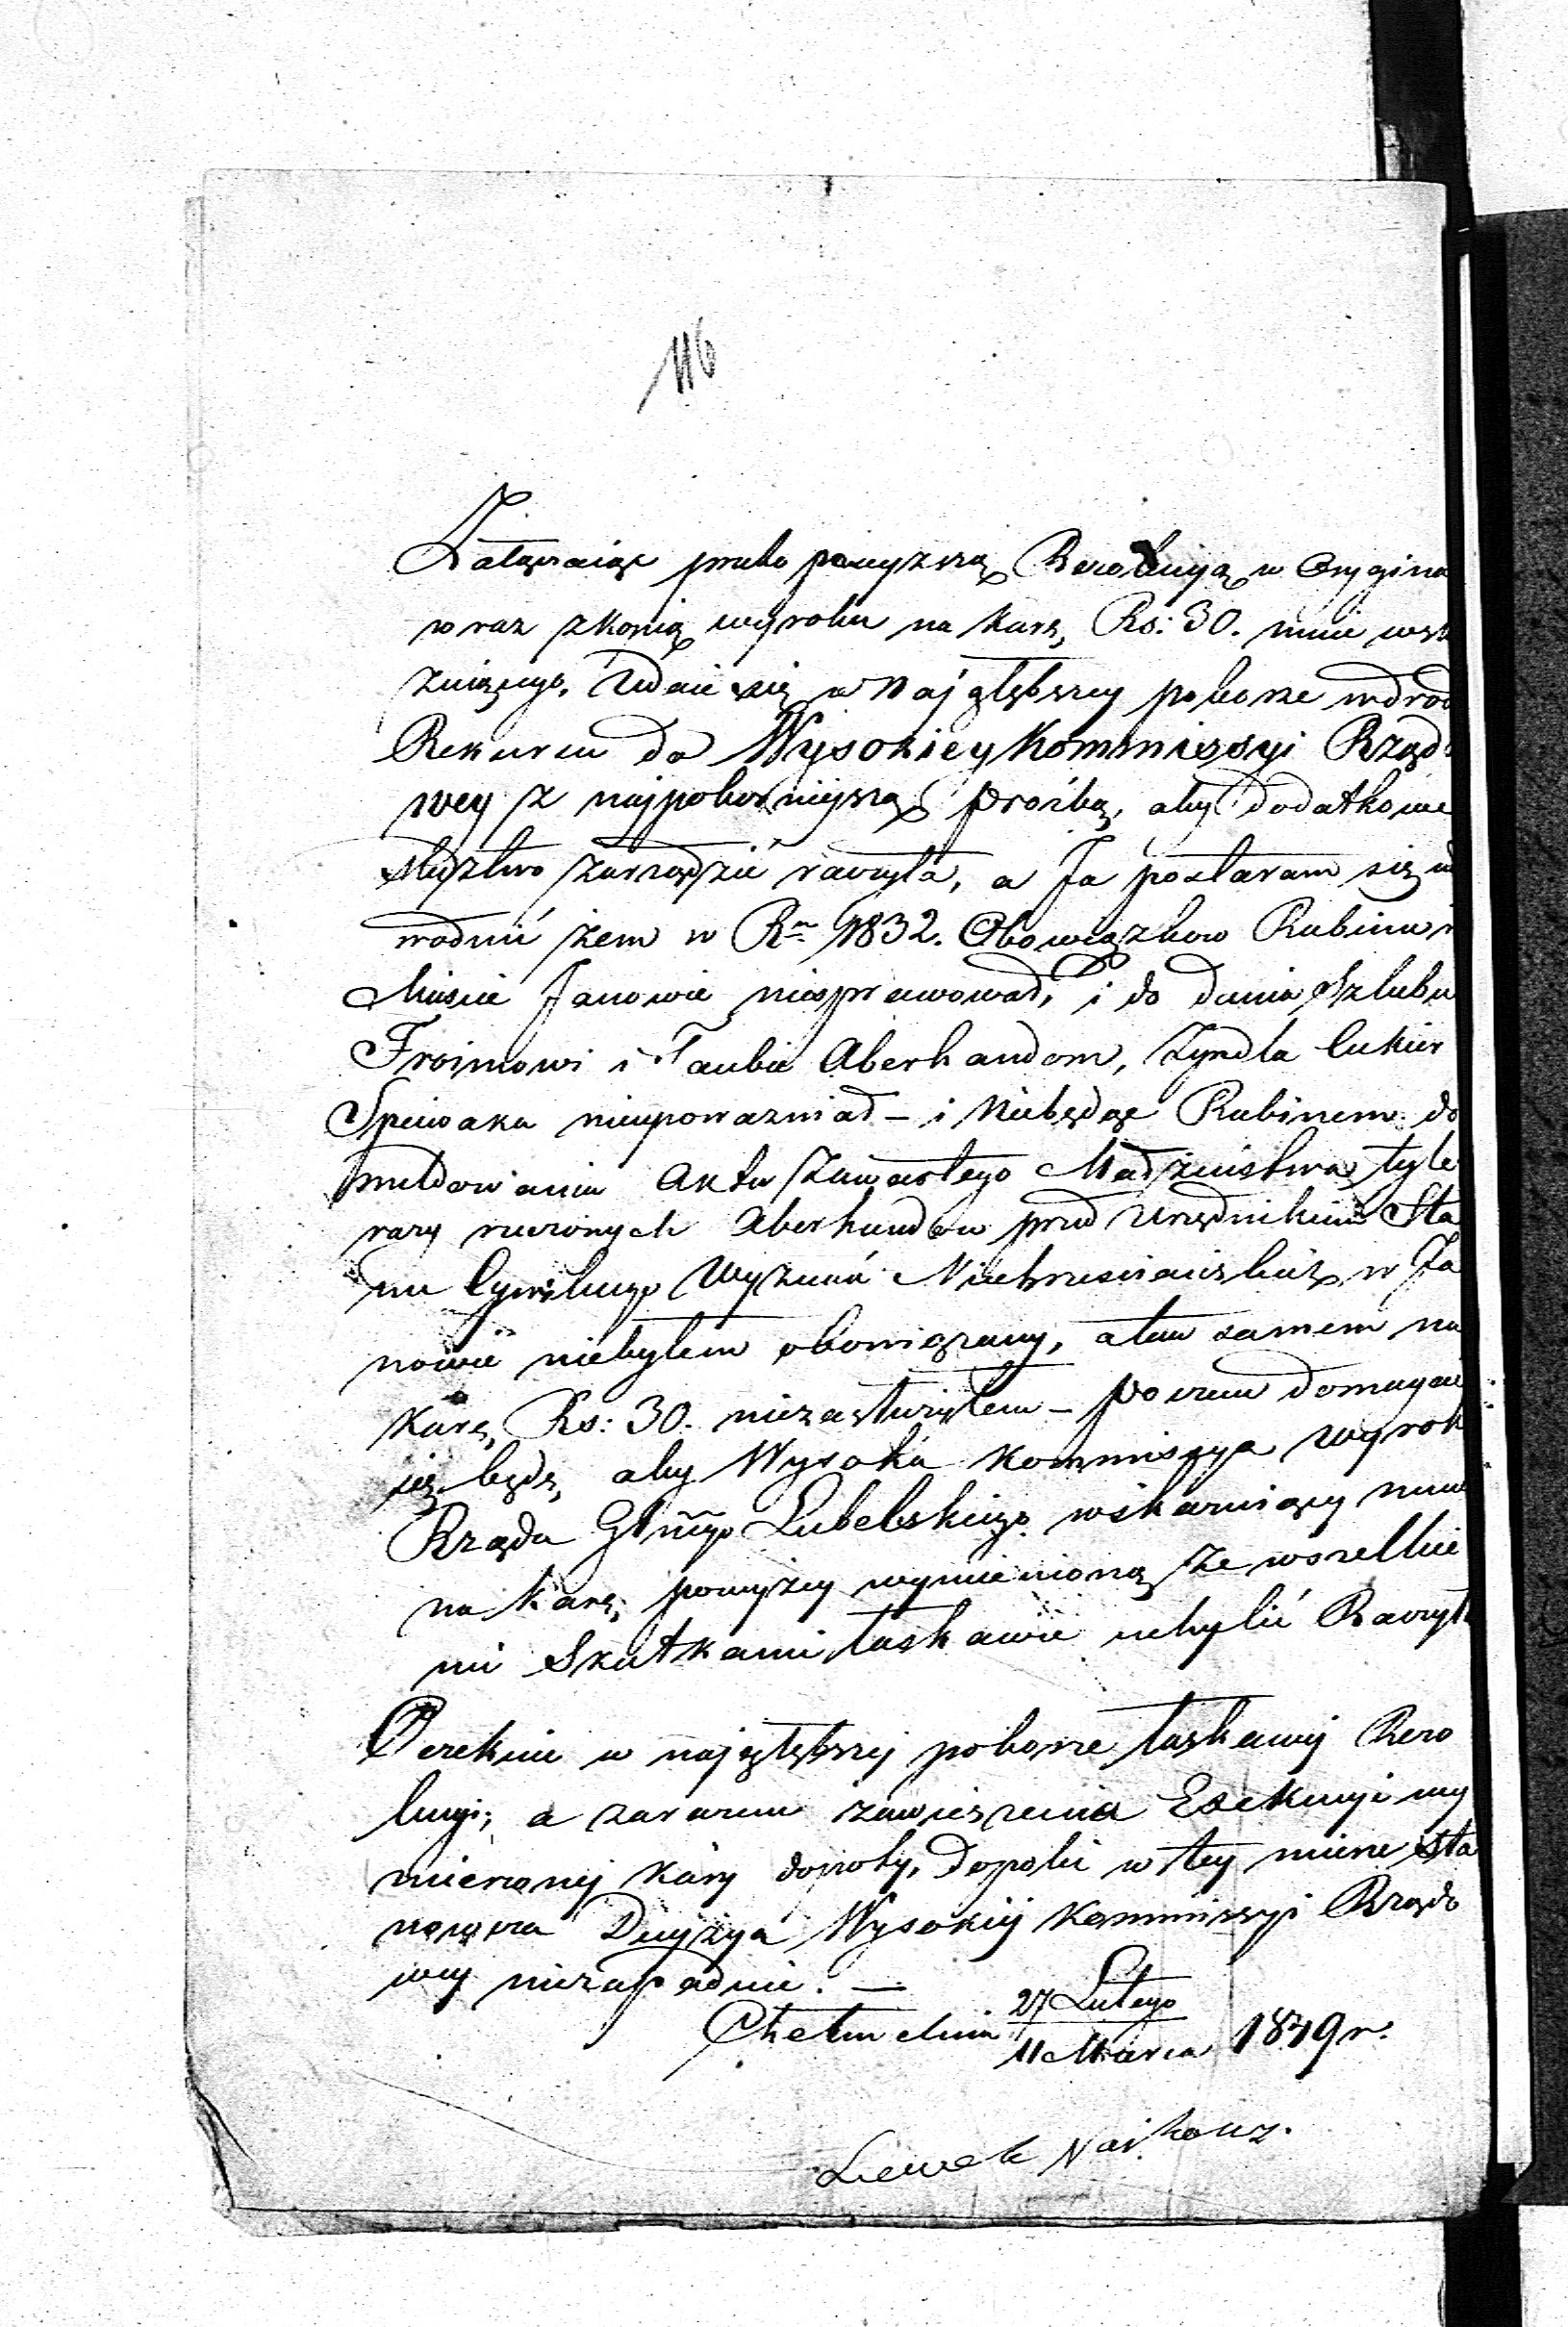 116
Załączaiąc przeto powyzszą Rezolucyą w Orygina
wraz z kopią wyroku na karę Rs: 30. mnie wska
zuiącego, Udaie się w Naj głębszey pokorze w drod
Rekursu do Wysokiey Kommissyi Rządo
wey z najpokorniejszą prośbą, aby dodatkowe
sledztwo zarządzić raczyła, a Ja postaram się u
wodnić żem w Rn 1832. Obowiązkow Rabina w
Mieście Janowie niesprawował, i do dania Szlubu
Froimowi i Taubie Aberhandom, Zyndla Cukier
Spiewaka nieupowazniał – i Niebędąc Rabinem do
meldowania Aktu Zawartego Małżeństwa tyle
razy rzeczonych Aberhandow przed Urzędnikiem Sta
nu Cywilnego Wyznań Niechrześciańskich w Ja
nowie niebyłem obowiązany, a tem samem na
karę Rs: 30. niezasłużyłem – poczem domagać
się będę, aby Wysoka Kommissya wyrok
Rządu Gbnego Lubelskiego wskazuiący mnie
na karę powyżey wymienioną ze wszelkie
mi Skutkami łaskawie uchylić Raczyła
Oczekuie w najgłębszej pokorze łaskawej Rezo
lucyi; a zarazem zawieszenia Exekucyi wy
mierzonej kary dopoty, dopoki w tey mierze sta
nowcza Decyzya Wysokiej Kommissyi Rządo
wey niezapadnie. —
Chełm dnia 27 Lutego
11 Marca 1849 r.